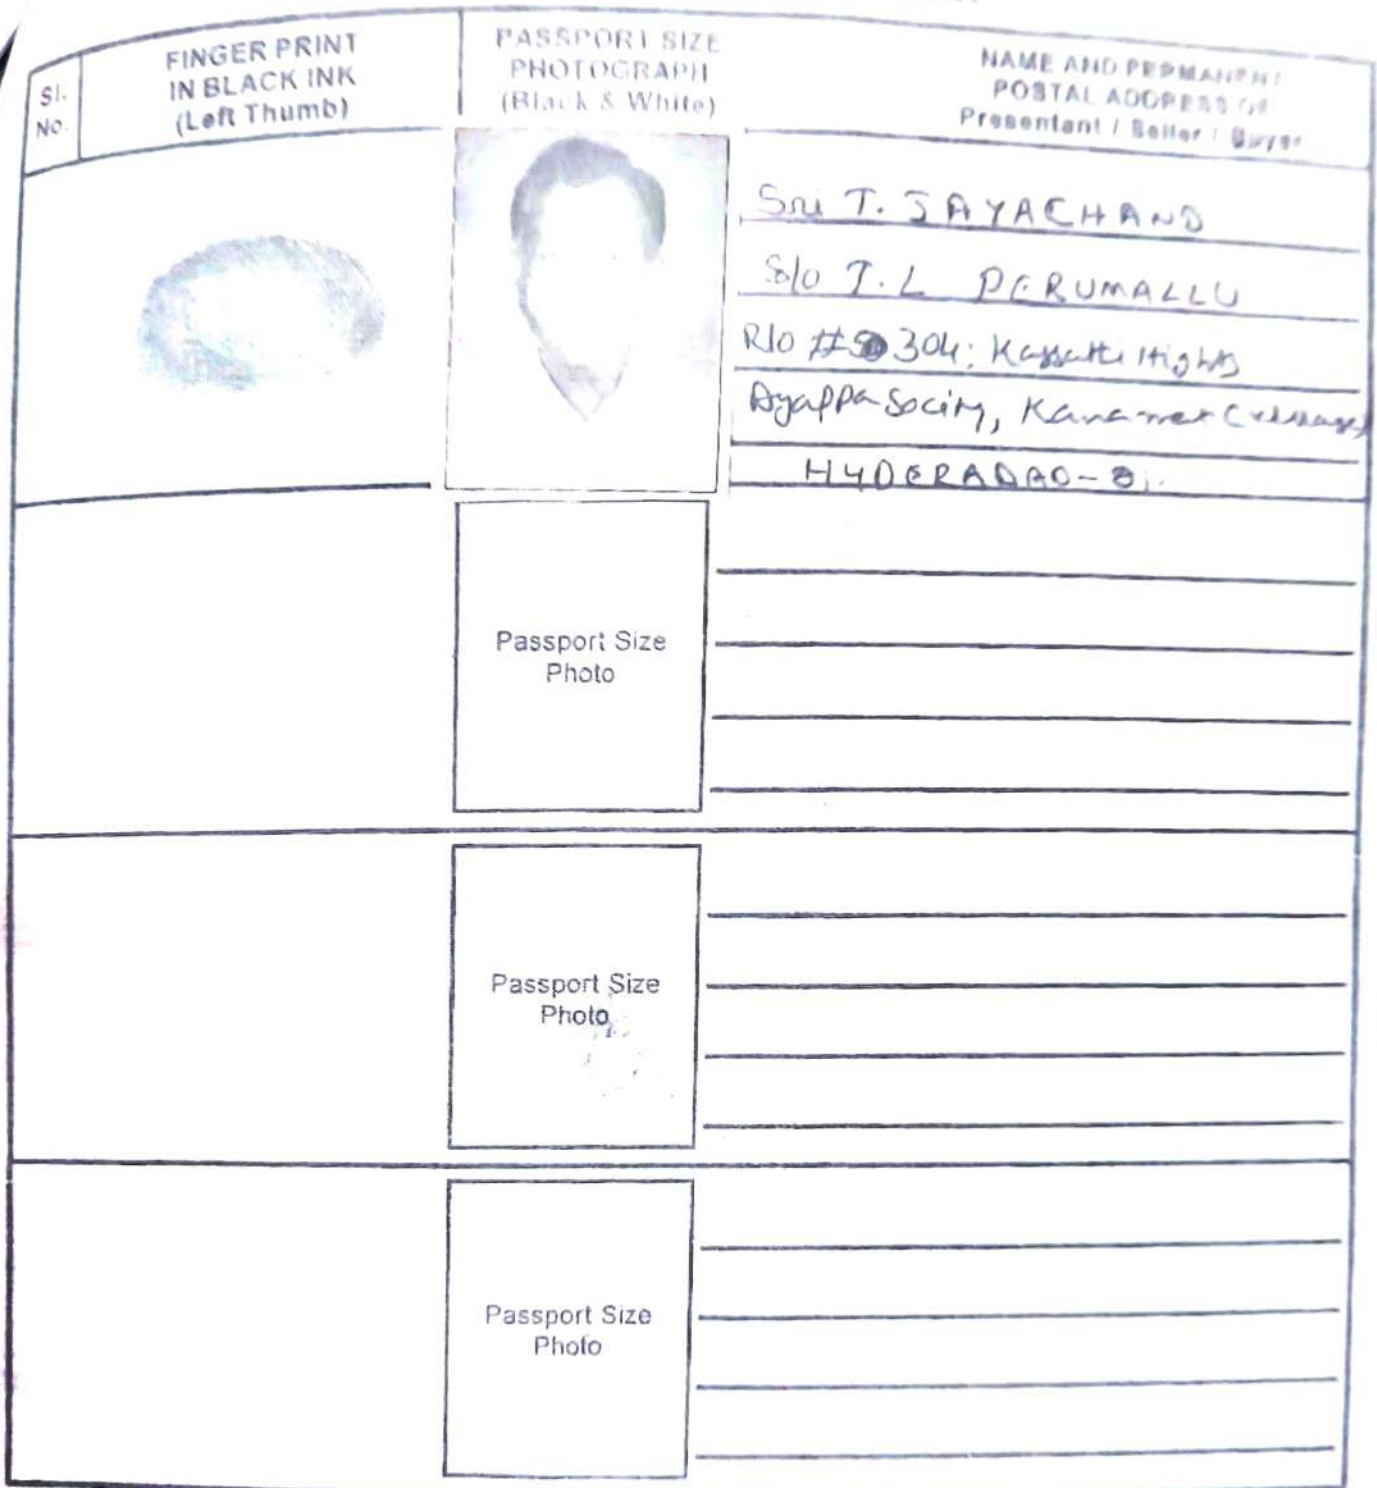 Sl.
No.
FINGER PRINT
IN BLACK INK
(Left Thumb)
PASSPORT SIZE
PHOTOGRAPH
(Black & White)
NAME AND PERMANENT
POSTAL ADDRESS OF
Presentant / Seller / Buyer
Sri T. JAYACHAND
S/o T. L PERUMALLU
R/o # 304; Hights
Ayappa Socity,
HYDERABAD - 81.
Passport Size
Photo
Passport Size
Photo
Passport Size
Photo